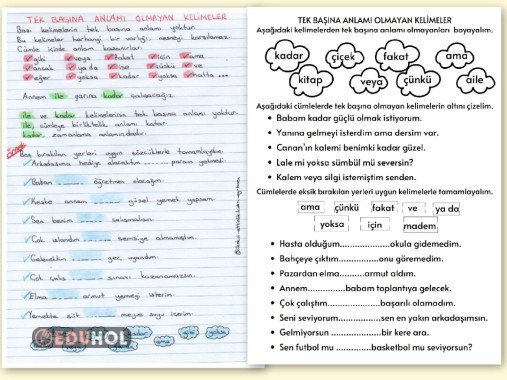 TEK BAŞINA ANLAMI OLMAYAN KELİMELER
Bazı kelimelerin tek başına anlamı yoktur.
Bu kelimeler herhangi bir varlığı, nesneyi karşılamaz.
Cümle içinde anlam kazanırlar.
gibi veya fakat için ama
ancak ya da ise çünkü ve
eğer kadar yoksa hatta ...
Annem ile yarına kadar çalışacağız.
ile ve kadar kelimelerinin tek başına anlamı yoktur.
ile, cümleye birliktelik anlamı katar.
kadar, zamanlama anlamındadır.
Boş bırakılan yerleri uygun sözcüklerle tamamlayalım.
Arkadaşıma hediye alacaktım param yetmedi.
Babam öğretmen olacağım.
Keşke annem güzel yemek yapsam.
Sen benim çalışmalısın.
Çok alındım semsiye almamıştım.
geç uyandım.
Çok çalış sınavı kazanamazsın.
Elma armut yemeyi isterim.
Yemekte süt meyve suyu içerim.
EDUHOL
TEK BAŞINA ANLAMI OLMAYAN KELİMELER
Aşağıdaki kelimelerden tek başına anlamı olmayanları boyayalım.
kadar çiçek fakat ama
kitap veya çünkü aile
Aşağıdaki cümlelerde tek başına olmayan kelimelerin altını çizelim.
• Babam kadar güçlü olmak istiyorum.
• Yanına gelmeyi isterdim ama dersim var.
• Conan'ın kalemi benimki kadar güzel.
• Lale mi yoksa sümbül mü seversin?
• Kalem veya silgi istemiştim senden.
Cümlelerde eksik bırakılan yerleri uygun kelimelerle tamamlayalım.
ama çünkü fakat ve ya da
yoksa için madem
• Hasta olduğum.................okula gidemedim.
• Bahçeye çıktım.............onu göremedim.
• Pazardan elma..........armut aldım.
• Annem.............babam toplantıya gelecek.
• Çok çalıştım.................başarılı olamadım.
• Seni seviyorum..............sen en yakın arkadaşımsın.
• Gelmiyorsun ...............bir kere ara.
• Sen futbol mu ............basketbol mu seviyorsun?